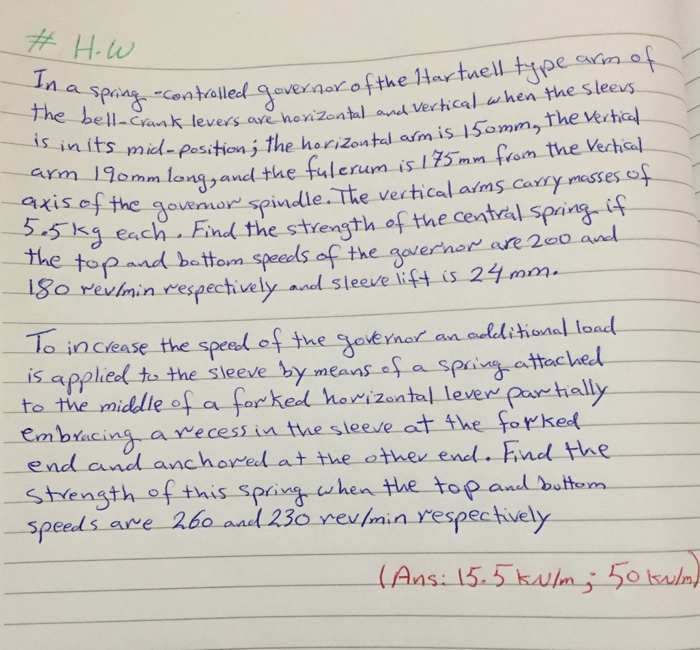 # H.W
In a spring-controlled governor of the Hartnell type arm of
the bell-crank levers are horizontal and vertical when the sleeve
is in its mid-position; the horizontal arm is 150mm, the vertical
arm 190mm long, and the fulcrum is 175mm from the vertical
axis of the governor spindle. The vertical arms carry masses of
5.5kg each. Find the strength of the central spring if
the top and bottom speeds of the governor are 200 and
180 rev/min respectively and sleeve lift is 24mm.
To increase the speed of the governor an additional load
is applied to the sleeve by means of a spring attached
to the middle of a forked horizontal lever partially
embracing a recess in the sleeve at the forked
end and anchored at the other end. Find the
strength of this spring when the top and bottom
speeds are 260 and 230 rev/min respectively
(Ans: 15.5 kN/m; 50 kN/m)